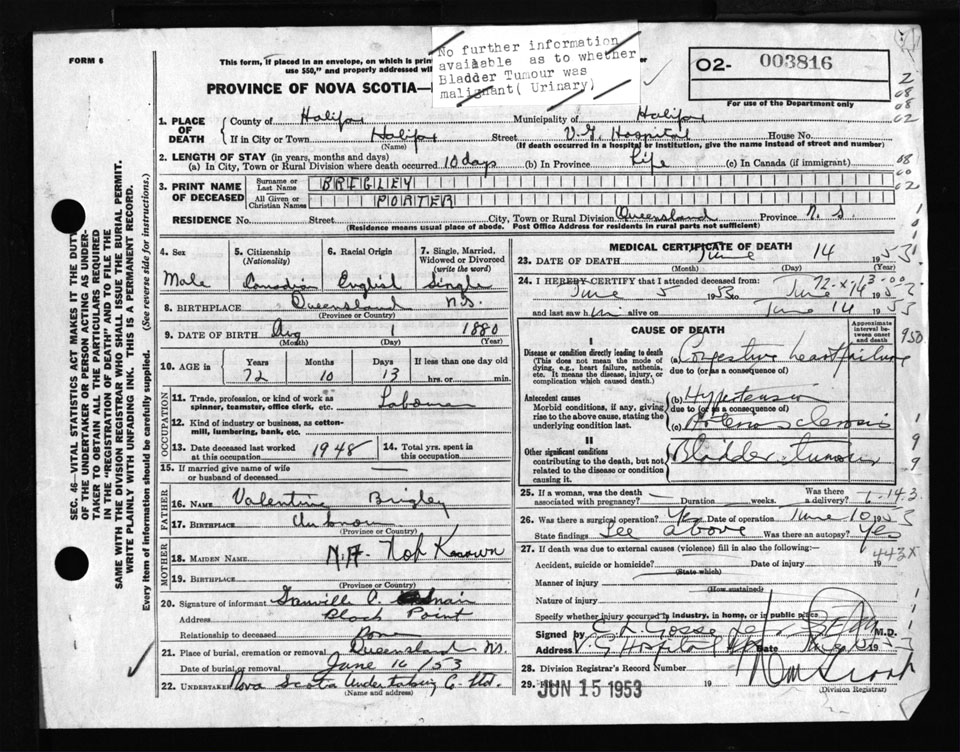 FORM 6
This form, if placed in an envelope, on which is prin
use $50," and properly addressed wil
PROVINCE OF NOVA SCOTIA—
No further information
available as to whether
Bladder Tumour was
malignant( Urinary)
02- 003816
For use of the Department only
1. PLACE OF DEATH
County of Halifax Municipality of Halifax
If in City or Town Halifax Street V.G. Hospital House No.
(Name) (If death occurred in a hospital or institution, give the name instead of street and number)
2. LENGTH OF STAY (in years, months and days)
(a) In City, Town or Rural Division where death occurred 10 days (b) In Province Life (c) In Canada (if immigrant)
3. PRINT NAME OF DECEASED
Surname or Last Name BRIGLEY
All Given or Christian Names PORTER
RESIDENCE No. Street City, Town or Rural Division Queensland Province N.S.
(Residence means usual place of abode. Post Office Address for residents in rural parts not sufficient)
4. Sex Male
5. Citizenship (Nationality) Canadian
6. Racial Origin English
7. Single, Married, Widowed or Divorced (write the word) Single
8. BIRTHPLACE Queensland N.S.
(Province or Country)
9. DATE OF BIRTH Aug 1 1880
(Month) (Day) (Year)
10. AGE in Years 72 Months 10 Days 13 If less than one day old hrs. or min.
OCCUPATION
11. Trade, profession, or kind of work as spinner, teamster, office clerk, etc. Labourer
12. Kind of industry or business, as cotton-mill, lumbering, bank, etc.
13. Date deceased last worked at this occupation 1948
14. Total yrs. spent in this occupation
15. If married give name of wife or husband of deceased —
FATHER
16. NAME Valentine Brigley
17. BIRTHPLACE Unknown
(Province or Country)
MOTHER
18. MAIDEN NAME N.K. Not Known
19. BIRTHPLACE
(Province or Country)
20. Signature of informant
Address Black Point
Relationship to deceased None
21. Place of burial, cremation or removal Queensland N.S.
Date of burial or removal June 16/53
22. UNDERTAKER Nova Scotia Undertaking C. Ltd.
(Name and address)
MEDICAL CERTIFICATE OF DEATH
23. DATE OF DEATH June 14 1953
(Month) (Day) (Year)
24. I HEREBY CERTIFY that I attended deceased from:
June 5 1953 to June 1953
and last saw him alive on June 14 1953
CAUSE OF DEATH
Approximate interval between onset and death
I
Disease or condition directly leading to death
(This does not mean the mode of dying, e.g., heart failure, asthenia, etc. It means the disease, injury, or complication which caused death.
(a) Congestive heart failure
due to (or as a consequence of)
Antecedent causes
Morbid conditions, if any, giving rise to the above cause, stating the underlying condition last.
(b) Hypertension
due to (or as a consequence of)
(c) Arteriosclerosis
II
Other significant conditions
contributing to the death, but not related to the disease or condition causing it.
Bladder tumour
25. If a woman, was the death associated with pregnancy? — Duration weeks. Was there a delivery?
26. Was there a surgical operation? Yes Date of operation June 10 1953
State findings See above Was there an autopsy? Yes
27. If death was due to external causes (violence) fill in also the following:—
443X
Accident, suicide or homicide? Date of injury 19
(State which)
Manner of injury
(How sustained)
Nature of injury
Specify whether injury occurred in industry, in home, or in public place
Signed by M.D.
Address V.G. Hospital Date
28. Division Registrar's Record Number
29. JUN 15 1953 19
(Division Registrar)
SEC. 46—VITAL STATISTICS ACT MAKES IT THE DUTY
OF THE UNDERTAKER OR PERSON ACTING AS UNDER-
TAKER TO OBTAIN ALL THE PARTICULARS REQUIRED
IN THE "REGISTRATION OF DEATH" AND TO FILE THE
SAME WITH THE DIVISION REGISTRAR WHO SHALL ISSUE THE BURIAL PERMIT.
WRITE PLAINLY WITH UNFADING INK. THIS IS A PERMANENT RECORD.
Every item of information should be carefully supplied. (See reverse side for instructions.)